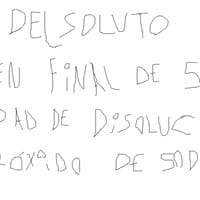 DEL SOLUTO
EN FINAL DE 5
DAD DE DISOLUC
RÓXIDO DE SOD